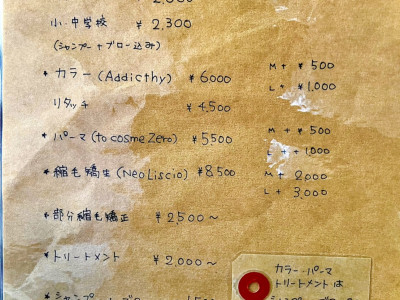 小・中学校 ¥2,300
(シャンプー+ブロー込み)
* カラー(Addicthy) ¥6000 M + ¥500
L + ¥1,000
リタッチ ¥4,500
* パーマ(to cosme Zero) ¥5500 M + ¥500
L + 1,000
* 縮毛矯生(Neo Liscio) ¥8,500 M + 2,000
L + 3,000
* 部分縮毛矯正 ¥2,500~
* トリートメント ¥2,000~
カラー・パーマ
トリートメントは